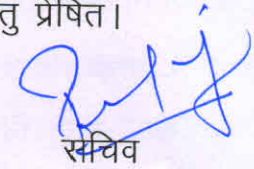 तु प्रेषित।
सचिव